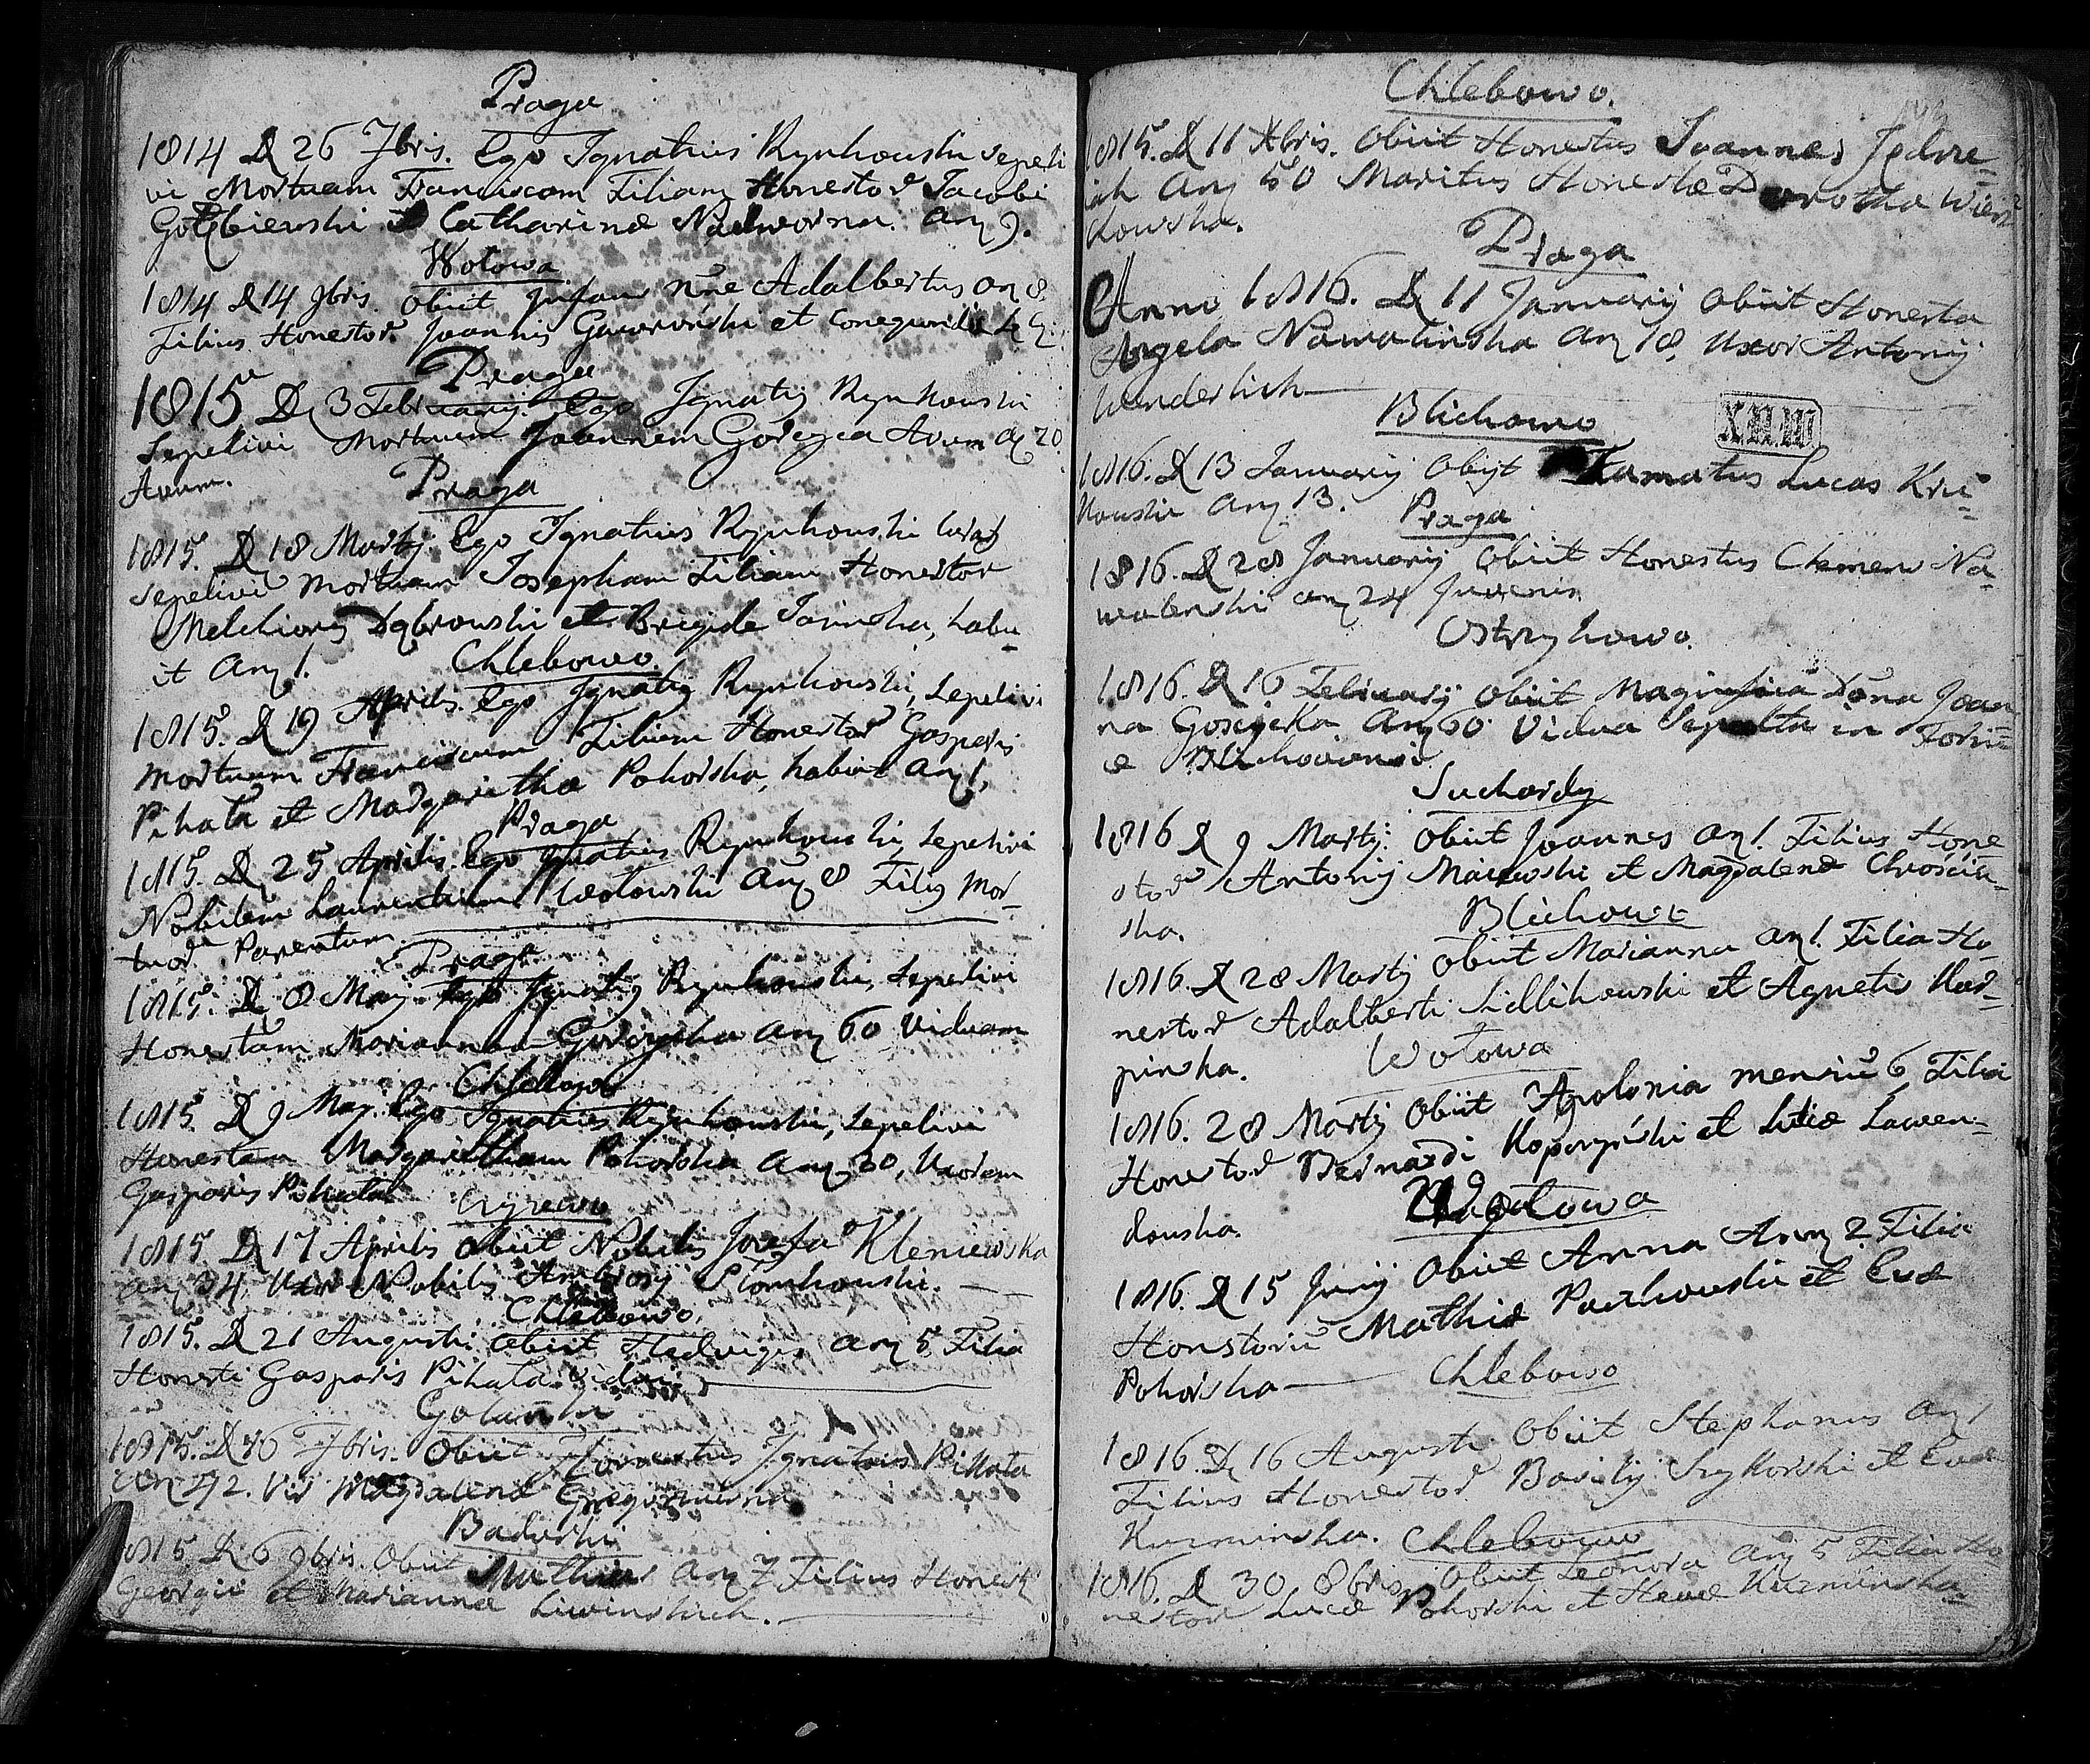 Praga
1814 D 26 7bris. Ego Ignatius Rynkowski sepeli
vi Mortuam Franciscam Filiam Honestor Jacobi
Gołębiewski et Catharinæ Nadworna. An 9.
Wołowa
1814 D 14 9bris. Obiit Infans nñe Adalbertus an 8.
Filius Honestor Joannis Gaworoński et Conegundis
Praga
1815 D 3 Februarij Ego Ignatij Rynkowski
Sepelivi Mortuum Joannem 20
Praga
1815. D 18 Martij Ego Ignatius Rynkowski
sepelivi mortuam Josepham Filiam Honestor
Melchioris Dąbrowski et Brigide Jasinska, habu
it An 1.
Chlebowo
1815. D 19 Aprilis Ego Ignatij Rynkowski, Sepelivi
mortuum Franciscum Filium Honestor Gasparis
Pikata et Margaritha Pokorska, habuit an 1,
Praga
1815. D 25 Aprilis. Ego Ignatius Rynkowski, Sepelivi
Nobilem Laurentium Wołowski An 8 Filij Mor-
tuor Parentum
Praga
1815. D 8 Maij Ego Ignatij Rynkowski, sepelivi
Honestam Mariannam an 60 Viduam
Chlebowo
1815. D 9 Maij. Ego Ignatius Rynkowski, sepelivi
Honestam Margaritham Pokorska An 30, Uxorem
Gasparis Pikata
1815 D 17 Aprilis Obiit Nobilis Josefa Kleniewska
An 34 Uxor Nobilis Ambrosij Słomkowski.
Chlebowo.
1815. D 21 Augusti Obiit Hedvigis An 5 Filia
Honesti Gasparis Pikata Vidui
1815. 7bris. Obiit Honestus Ignatius Pikata
Vir Magdalenæ
1815 D 6 9bris. Obiit Mathias An 7 Filius Honest
Georgii et Mariannæ Liwinskich.
Chlebowo.
1815. D 11 Xbris. Obiit Honestus Joannes Jędrze=
iak An 50 Maritus Honestæ Dorotha
kowska.
Praga
Anno 1816. D 11 Januarij Obiit Honesta
Angela Nawalinska An 18, Uxor Antonij
Wunderlich
Blichowo
1816. D 13 Januarij Obijt Famatus Lucas Kru=
kowski An 13.
Praga
1816. D 28 Januarij Obiit Honestus Clemens Na=
walenski an 24 Juvenis.
Ostrzykowo.
1816. D 16 Februarij Obiit Magnifica Dõna Joan
na Gosiycka An 60 Vidua Sepulta in
Suchardy
1816 D 9 Martij: Obiit Joannes An 1. Filius Hone
stor Antonij Maiewski et Magdalenæ Chrościń-
ska.
Blichowo
1816. D 28 Martij Obiit Marianna an 1. Filia Ho
nestor Adalberti Sidlikowski et Agnetis Kar-
pinska.
Wołowa
1816. 28 Martij Obiit Apolonia mensiũ 6, Filia
Honestor Bernardi Kopczyński et Luciæ Lawen-
dowska.
Wołowa
1816. D 15 Junij Obiit Anna Ann 2 Filia
Honstoriũ Mathiæ Paczkowski et Evæ
Pokorska
Chlebowo
1816. D 16 Augusti Obiit Stephanus An 1
Filius Honestor Basilij Szykorski et Evæ
Kuzminska.
Chlebowo
1816. D 30, 8bris Obiit Leonora An 5 Filia Ho
nestor Lucæ Pokorski et Hevæ Kuzminska